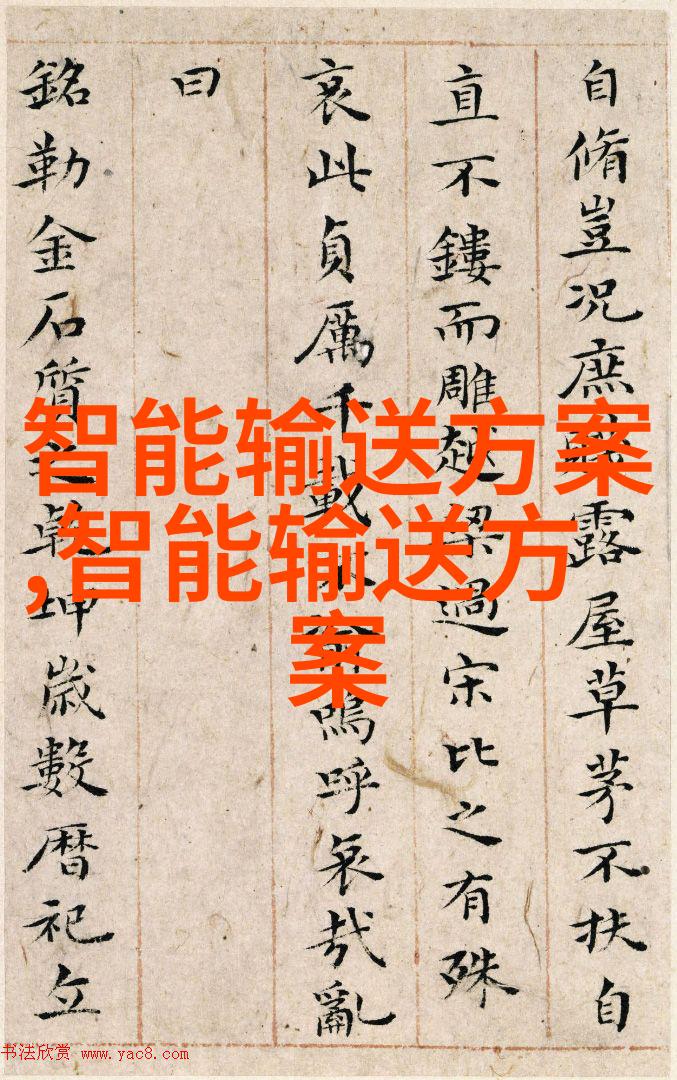 自脩豈況庶露屋草茅不扶自
直不鏤而雕越梁過宋比之有殊
哀此貞厲千載不渝嗚呼哀哉亂
曰
銘勒金石質之乾坤歳數暦祀立
智能输送方案
,智能输送方
案
书法欣赏 www.yac8.com